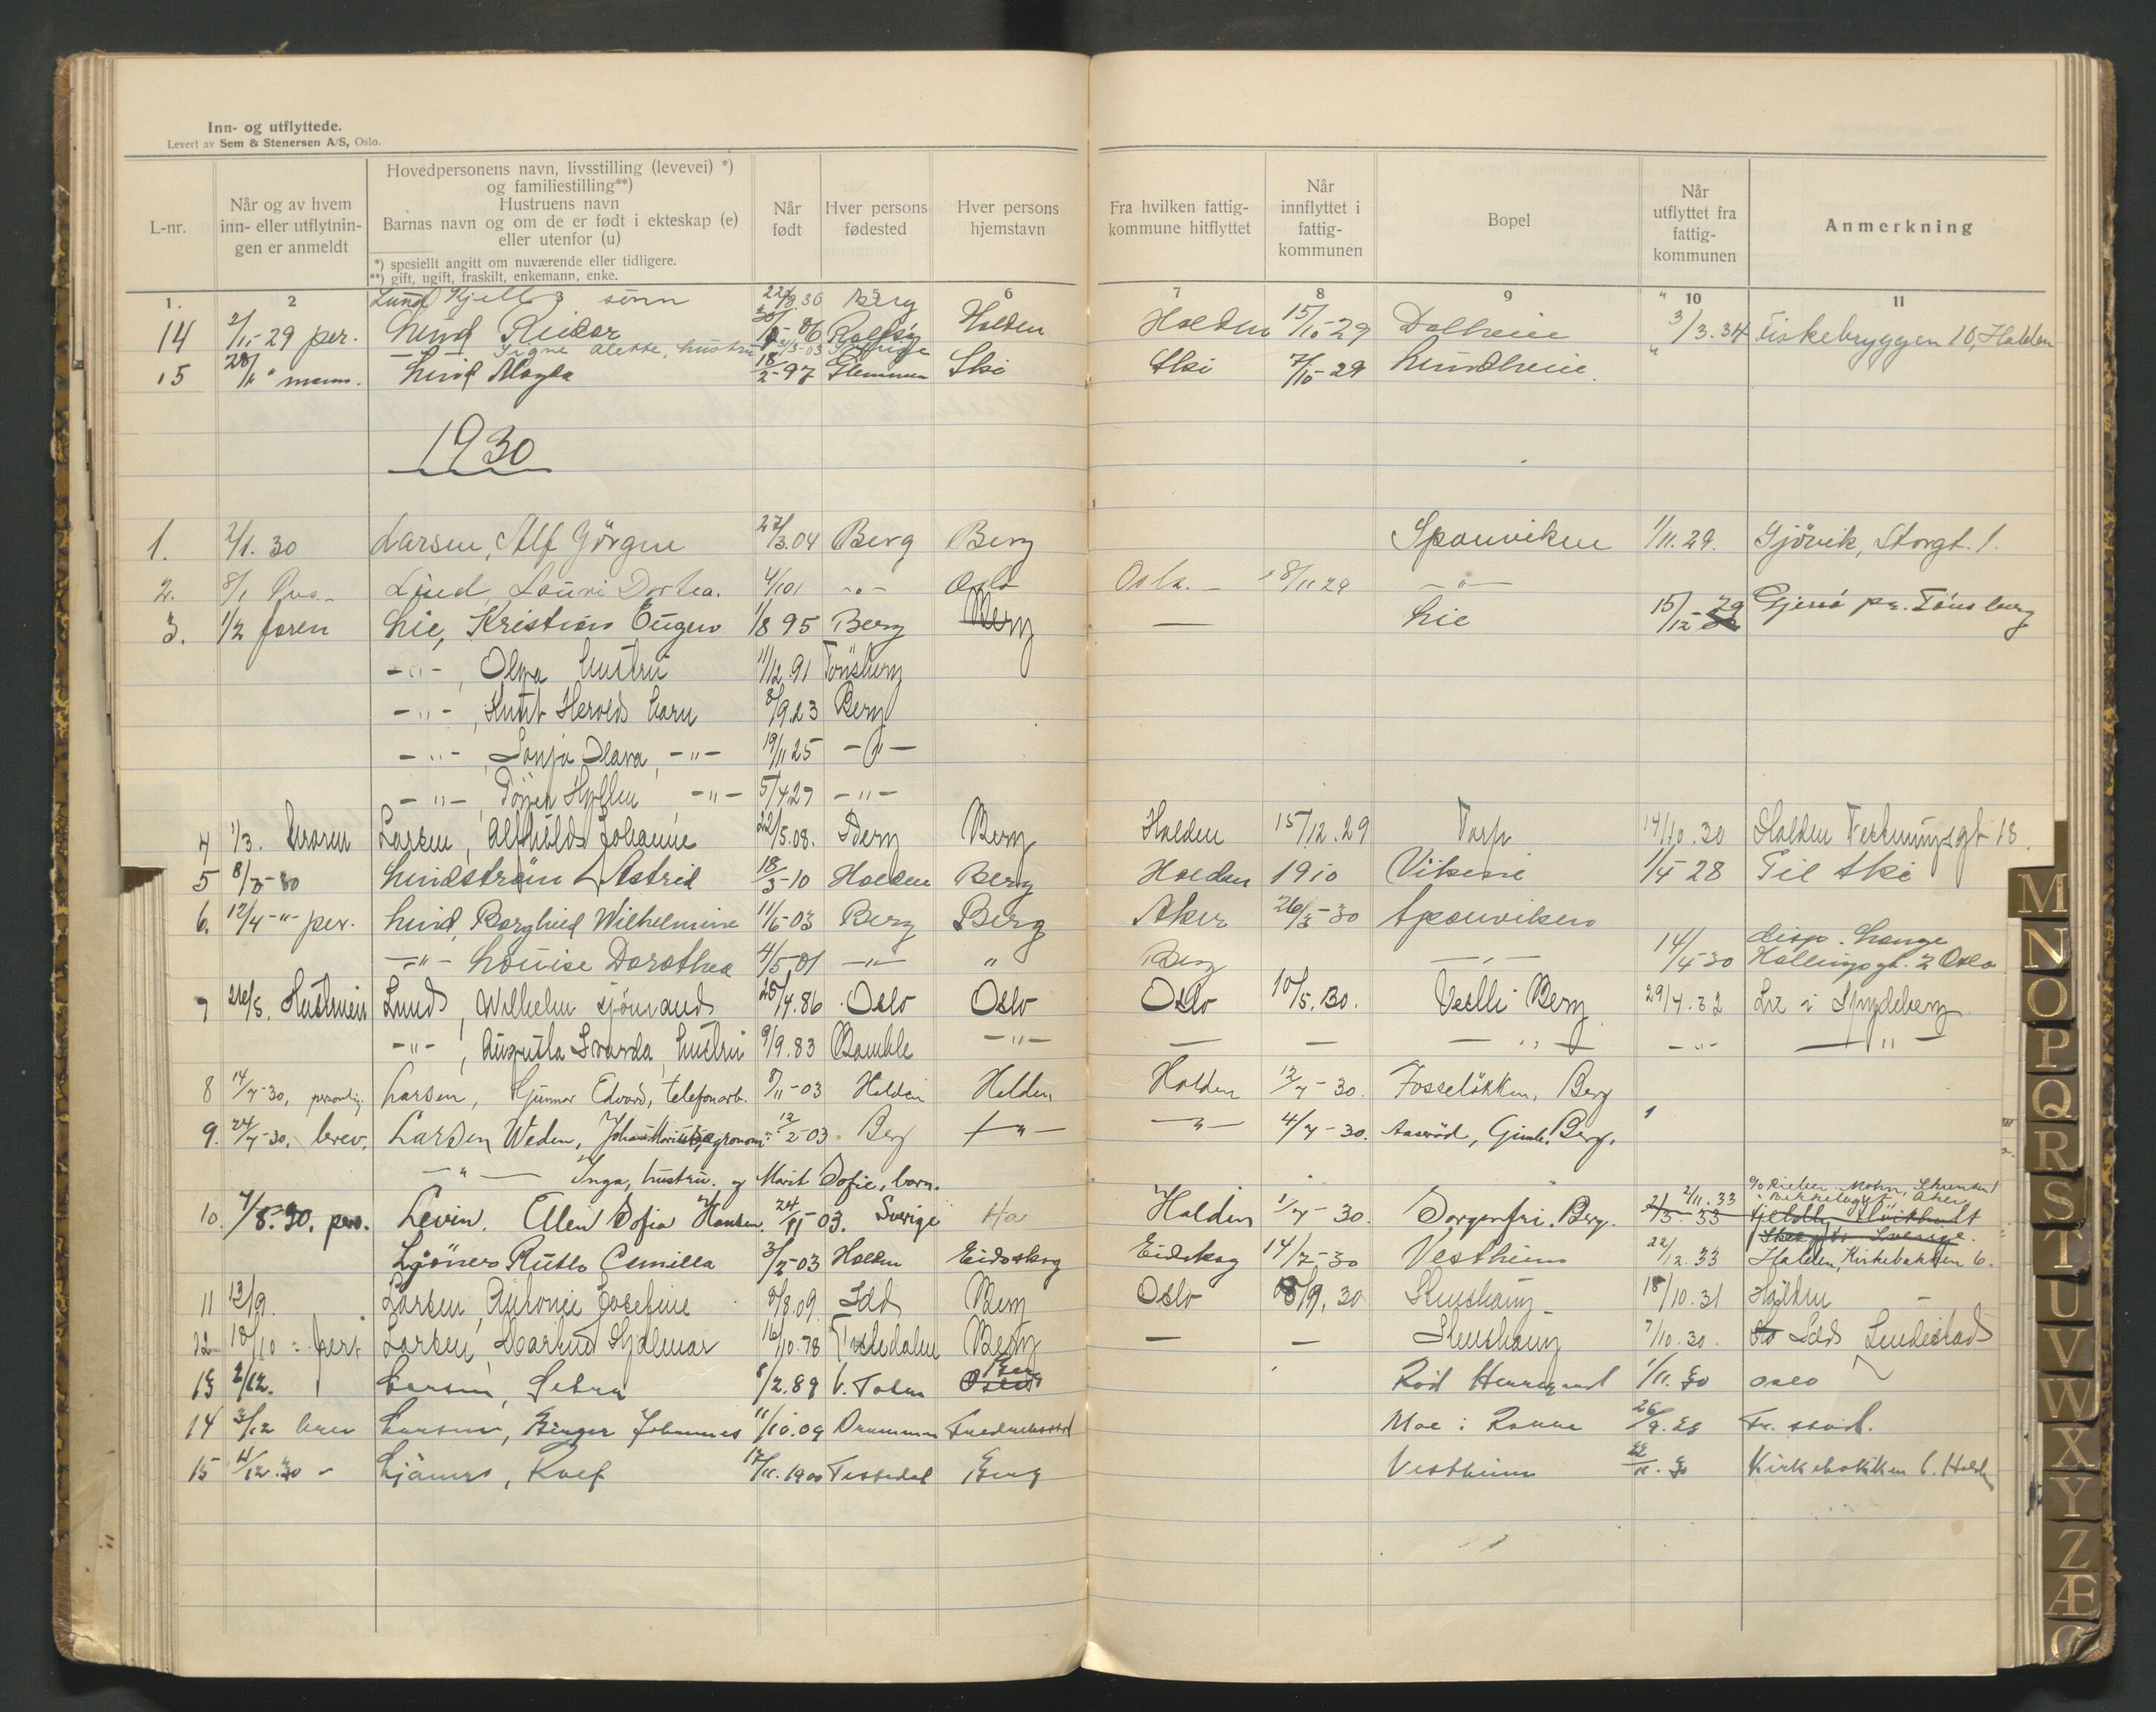 Inn- og utflyttede.
Levert av Sem & Stenersen A/S, Oslo.
L-nr. Når og av hvem inn- eller utflytnin- gen er anmeldt Hovedpersonens navn, livsstilling (levevei) *) og familiestilling**) Hustruens navn Barnas navn og om de er født i ekteskap (e) eller utenfor (u) *) spesiellt angitt om nuværende eller tidligere. **) gift, ugift, fraskilt, enkemann, enke. Når født Hver persons fødested Hver persons hjemstavn Fra hvilken fattig- kommune hitflyttet Når innflyttet i fattig- kommunen Bopel Når utflyttet fra fattig- kommunen Anmerkning
1. 2 6 7 8 9 10 11
Lund Kjell sønn 30 Berg
14 2/11-29 per. Lund Reidar Halden Halden 15/10-29 Dalheim 3/3.34 Fiskebryggen 10, Halden
Signe Alette, hustru
15 28/11 " mann. Lund Magda 18/2-97 Glemmen Ski Ski 7/10-29 Lundheim
1930
1. 2/1. 30 Larsen, Alf Görgen 27/3.04 Berg Berg Sponviken 1/11.29. Gjövik, Storgt. 1.
2. 8/1 Lund, Dortea. Oslo Oslo. - 8/11 29 -"-
3. 1/2 faren Lie, Kristian Eugen 1/8 95 Berg Berg — Lie 15/12-29 pr. Tönsberg
-"-, Olga hustru 11/12 91 Tönsberg
-"-, Knut Herolds barn 8/9 23 Berg
-"-, Sonja Clara, -"- 19/11 25 -"-
-"-, -"- 5/4 29 -"-
4 1/3. Larsen, Alfhild Johanne 22/5.08. Berg Berg Halden 15/12.29 Torp 14/10.30 Halden 18.
5 8/3-30 Lindström Astrid 18/3-10 Halden Berg Halden 1910 Viken 1/4 28 Til Ski
6. 12/4-"- per. Lund, Borghild Wilhelmine 11/6-03 Berg Berg Aker 26/3-30 Sponviken
-"- Louise Dorothea 4/5.01 -"- " Berg -"- 14/4-30 disp. Lange Hallingsgt. 2 Oslo
7 26/5. Hustruen Lund, Wilhelm sjömand 25/4.86 Oslo Oslo Oslo 10/5.30. Berg 29/4.32 i Spydeberg
-"-, Augusta hustru 9/9.83 Bamble -"- — — -"- -"- -"-
8 14/7-30, personlig. Larsen, Gunnar Edvard, telefonarb. 8/11-03 Halden Halden Halden 12/7-30. Fosselökken, Berg
9. 24/7-30. brev. Larsen Weden, agronom: 12/2-03. Berg -"- -"- 4/7-30. Aaseröd, Berg.
-"- Inga, hustru. og Marit Sofie, barn.
10. 7/8.30. pers. Levin, Ellen Sofia Hansen. 24/11-03. Sverige Ha Halden 1/7-30. Sorgenfri. Berg. 2/11.33 Mohn,
Aker
Sverige.
Ljöner Ruth Camilla 3/2-03 Halden Eidskog Eidskog 14/7-30 Vestheim 22/12.33 Halden, Kirkebakken 6.
11 13/9. Larsen, Antonie Josefine 8/8.09 Idd Berg Oslo 8/9.30 Stenshaug 18/10.31 Halden
12 18/10 - pers Larsen, Hjalmar 16/10.78 Tistedalen Berg — — Stenshaug 7/10.30. Idd
13 2/12. Larsen, 8/2.89 Berg Röd 1/11.30 Oslo
14 3/12 brev Larsen, Birger Johannes 11/10.09 Drammen Fredrikstad Moe i Fr.stad.
15 4/12.30 - Ljöner, Rolf 17/11.1900 Tistedal Berg Vestheim 22/11.30 Kirkebakken 6. Halden
M
N
O
P
Q
R
S
T
U
V
W
X
Y
Z
Æ